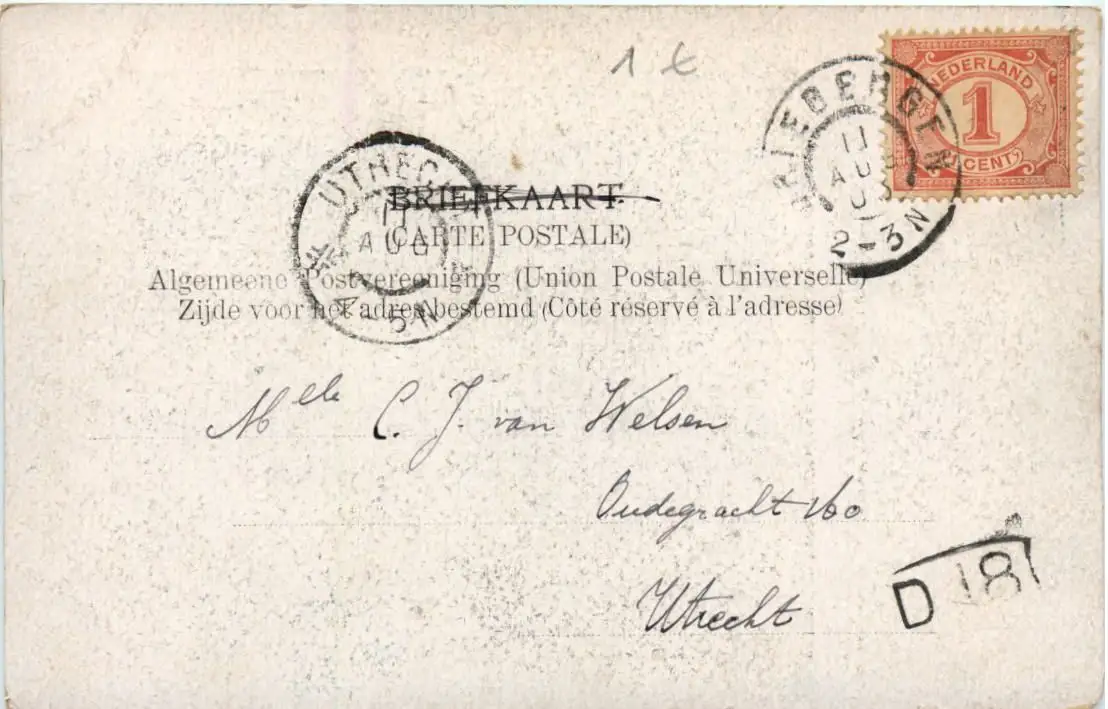 1 €
NEDERLAND
1
(1 CENT)
DRIEBERGEN
11
AUG
2-3N
UTRECHT
11
AUG
4-5N
BRIEFKAART.
(CARTE POSTALE)
Algemeene Postvereeniging (Union Postale Universelle)
Zijde voor het adres bestemd (Côté réservé à l'adresse)
Melle C. J. van Welsen
Oudegracht 160
Utrecht
D 18